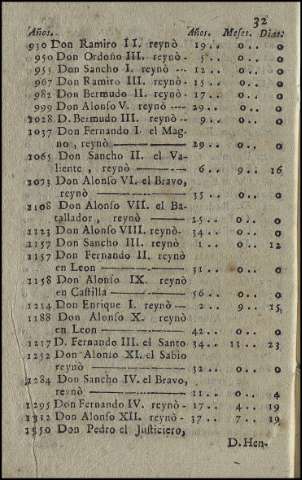 32
Años. Años. Meses. Dias.
930 Don Ramiro II. reynò- 19.. 0.. 0.
950 Don Ordoño III. reynò- 5.. 0.. 0.
955 Don Sancho I. reynò --- 12.. 0.. 0.
967 Don Ramiro III. reynò- 15.. 0.. 0.
982 Don Bermudo II. reynò- 17.. 0.. 0.
999 Don Alonso V. reynò ---- 29.. 0.. 0.
1028 D. Bermudo III. reynò -- 9.. 0.. 0.
1037 Don Fernando I. el Mag-
no, reynò ———— 29.. 0.. 0.
1065 Don Sancho II. el Va-
liente, reynò ———— 6.. 9.. 16
1073 Don Alonso VI. el Bravo,
reynò ———— 35.. 0.. 0.
1108 Don Alonso VII. el Ba-
tallador, reynò ———— 15.. 0.. 0.
1123 Don Alonso VIII. reynò- 34.. 0.. 0.
1157 Don Sancho III. reynò 1.. 0.. 12
1157 Don Fernando II. reynò
en Leon ———— 31.. 0.. 0.
1158 Don Alonso IX. reynò
en Castilla ———— 56.. 0.. 0.
1214 Don Enrique I. reynò -- 2.. 9.. 15
1188 Don Alonso X. reynò
en Leon ———— 42.. 0.. 0.
1217 D. Fernando III. el Santo 34.. 11.. 23
1252 Don Alonso XI. el Sabio
reynò ———— 32.. 0.. 0.
1284 Don Sancho IV. el Bravo,
reynò ———— 11.. 0.. 4
1295 Don Fernando IV. reynò- 17.. 4.. 19
1312 Don Alonso XII. reynò- 37.. 7.. 19
1350 Don Pedro el Justiciero,
D. Hen-